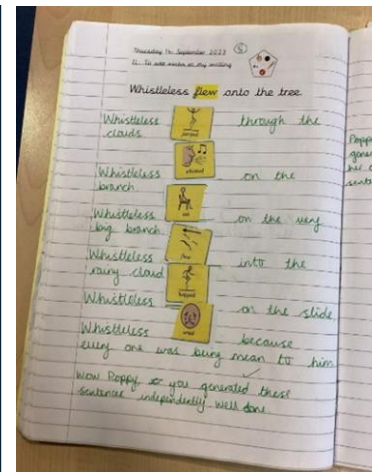 Thursday 14 September 2023
LI: To use verbs in my writing
Whistleless flew onto the tree.
Whistleless jumped through the
clouds
Whistleless whistled on the
branch
Whistleless sat on the very
big branch.
Whistleless flew into the
rainy cloud
Whistleless hopped on the slide
Whistleless cried because
every one was being mean to him
Wow Poppy you generated these
sentences independently. Well done
Poppy
gener
her
sente